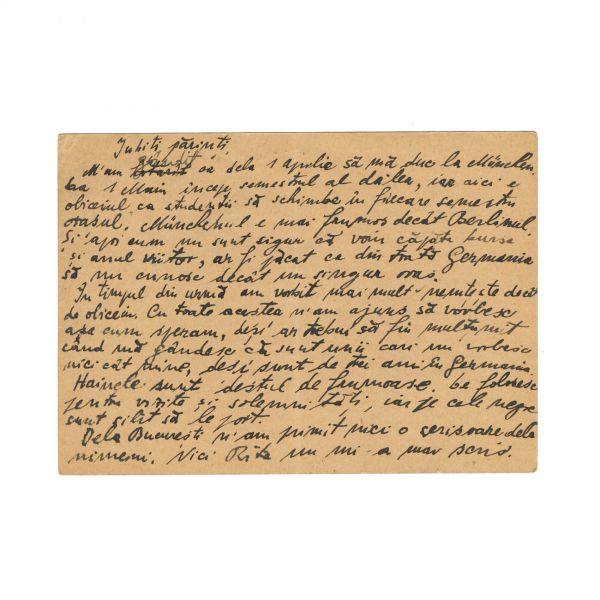 Iubiți părinți,
M'am gândit ca dela 1 aprilie să mă duc la München.
La 1 Main încep semestrul al doilea, iar aici e
obiceiul ca studenții să schimbe în fiecare semestru
orașul. Münchenul e mai frumos decât Berlinul.
Și apoi cum nu sunt sigur că voiu căpăta bursa
și anul viitor, ar fi păcat ca din toată Germania
să nu cunosc decât un singur oraș.
În timpul din urmă am vorbit mai mult nemțește decât
de obiceiu. Cu toate acestea n'am ajuns să vorbesc
așa cum speram, deși ar trebui să fiu mulțumit
când mă gândesc că sunt unii cari nu vorbesc
nici cât mine, deși sunt de trei ani în Germania
Hainele sunt destul de frumoase, le folosesc
pentru vizite și solemnități, iar pe cele negre
sunt silit să le port.
Dela București n'am primit nici o scrisoare dela
nimeni. Nici Rita nu mi-a mai scris.